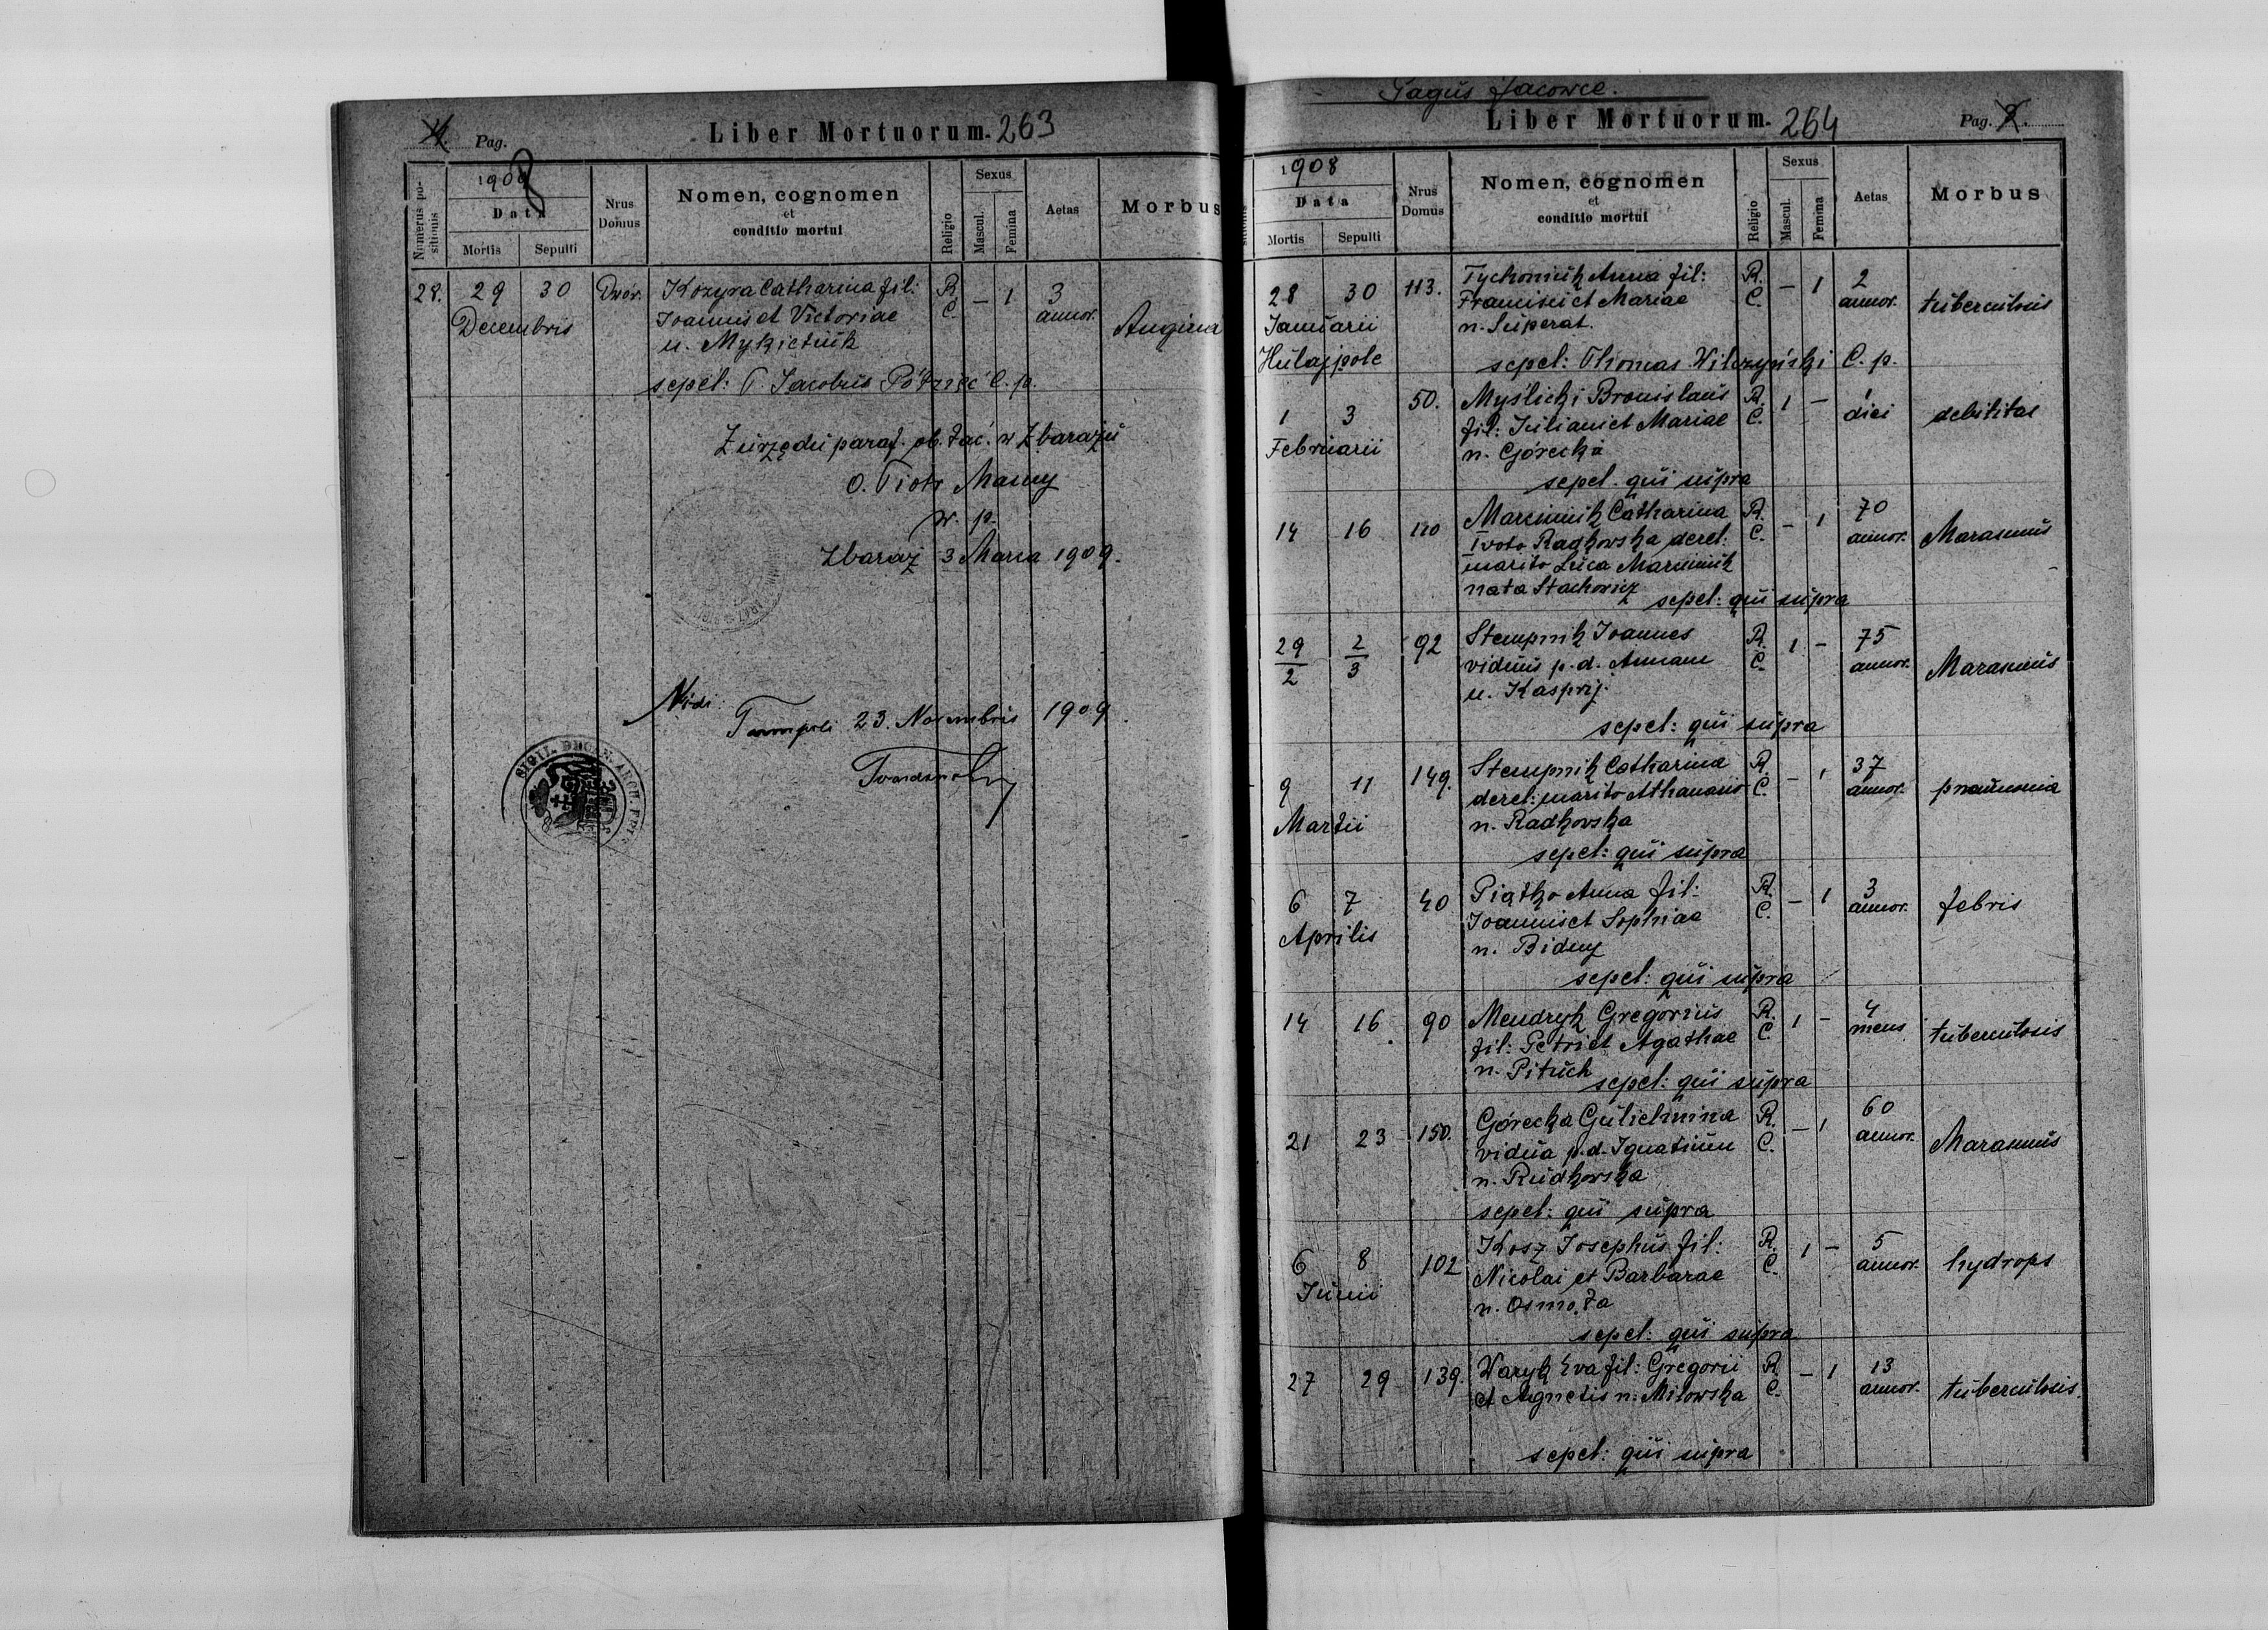 4. Pag.
Liber Mortuorum. 263
Numerus positionis
1908
Data
Mortis
Sepulti
Nrus Domus
Nomen, cognomen
et
conditio mortui
Religio
Sexus
Mascul.
Femina
Aetas
Morbus
28. 29 30 Dwór. Kozyra Catharina fil: R. C. — 1 3 annor. Angina
Decembris Joannis et Victoriae
n. Mykietiuk
sepel: P. Jacobus Półzięć C. p.
Z urzędu paraf. ob. łać. w Zbarażu
O. Piotr Mamy
w. p.
Zbaraż 3 Marca 1909.
Vidi:
Tarnopoli 23. Novembris 1909.
SIGIL. DECAN. ARCH. EPI
Pagus Jacowce.
Liber Mortuorum. 264
Pag. 2.
sitionis
1908
Data
Mortis
Sepulti
Nrus Domus
Nomen, cognomen
et
conditio mortui
Religio
Sexus
Mascul.
Femina
Aetas
Morbus
28 30 113. Tychoniuk Anna fil: R. C. — 1 2 annor. tuberculosis
Januarii Francisci et Mariae
n. Superat.
Hulajpole sepel: Thomas Wilczyński C. p.
1 3 50. Myślicki Bronislaus R. C. 1 — 1 diei debilitas
Februarii fil: Juliani et Mariae
n. Górecka
sepel. qui supra
14 16 110 Marciniuk Catharina R. C. — 1 70 annor. Marasmus
I voto Radkowska derel:
marito Luca Marciniuk
nata Stachowicz
sepel: qui supra
29/2 2/3 92 Stempnik Joannes R. C. 1 — 75 annor. Marasmus
viduus p. d. Annam
n. Kasprij.
sepel: qui supra
9 11 149. Stempnik Catharina R. C. — 1 37 annor. pneumonia
Martii derel: marito Athanasio
n. Radkowska
sepel: qui supra
6 7 40 Piątko Anna fil: R. C. — 1 3 annor. febris
Aprilis Joannis et Sophiae
n. Bidny
sepel: qui supra
14 16 90 Mendryk Gregorius R. C. 1 — 4 mens tuberculosis
fil: Petri et Agathae
n. Pituch
sepel: qui supra
21 23 150. Górecka Gulielmina R. C. — 1 60 annor. Marasmus
vidua p. d. Ignatium
n. Rudkowska
sepel: qui supra
6 8 102 Kosz Josephus fil: R. C. 1 — 5 annor. hydrops
Junii Nicolai et Barbarae
n. Osmoła
sepel: qui supra
27 29 139. Waryk Eva fil: Gregorii R. C. — 1 13 annor. tuberculosis
et Agnetis n. Milowska
sepel: qui supra